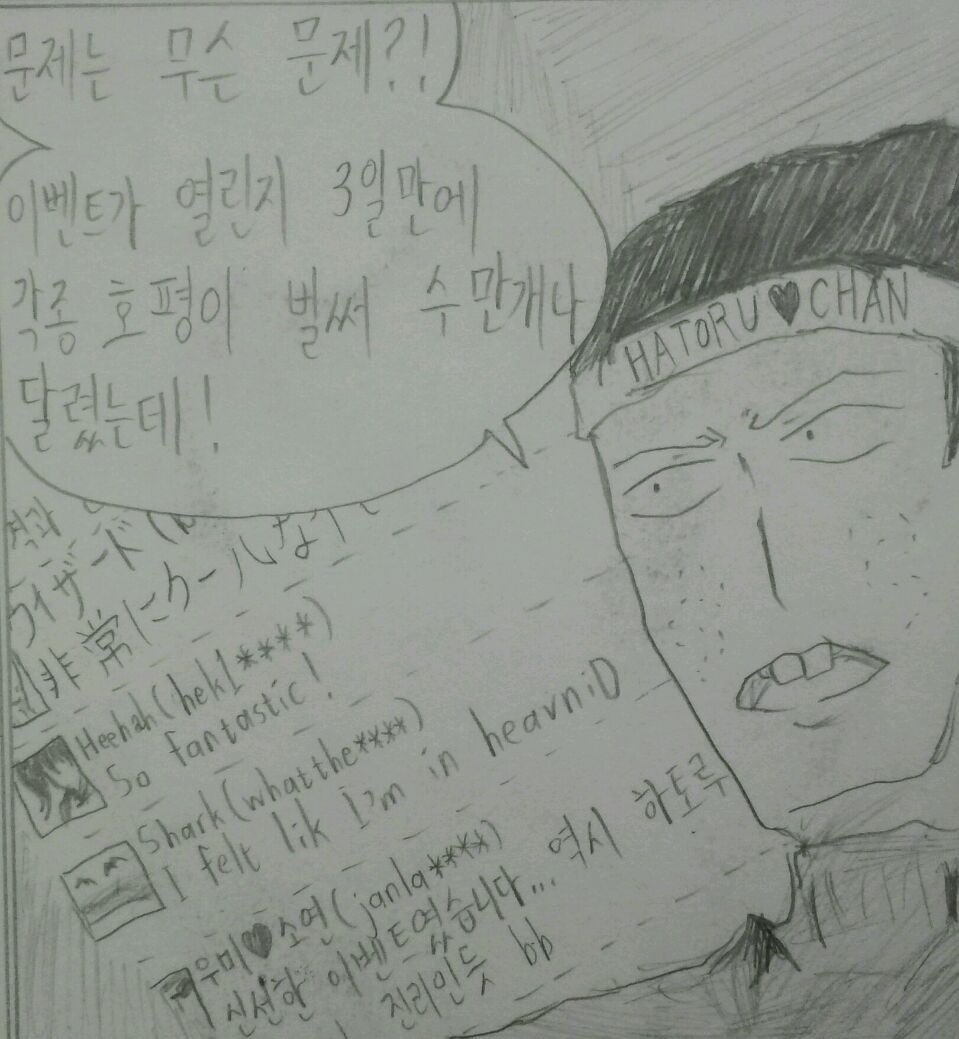 문제는 무슨 문제?!
이벤트가 열린지 3일만에
각종 호평이 벌써 수만개나
달렸는데!
HATORU♥CHAN
격과
ウィザード
非常にクールな
Heehah(hek1****)
So fantastic!
Shark(whatthe****)
I felt lik I'm in heavn:D
우미♥소연(janla****)
신선한 이벤트였습니다... 역시 하토루
진리인듯 bb